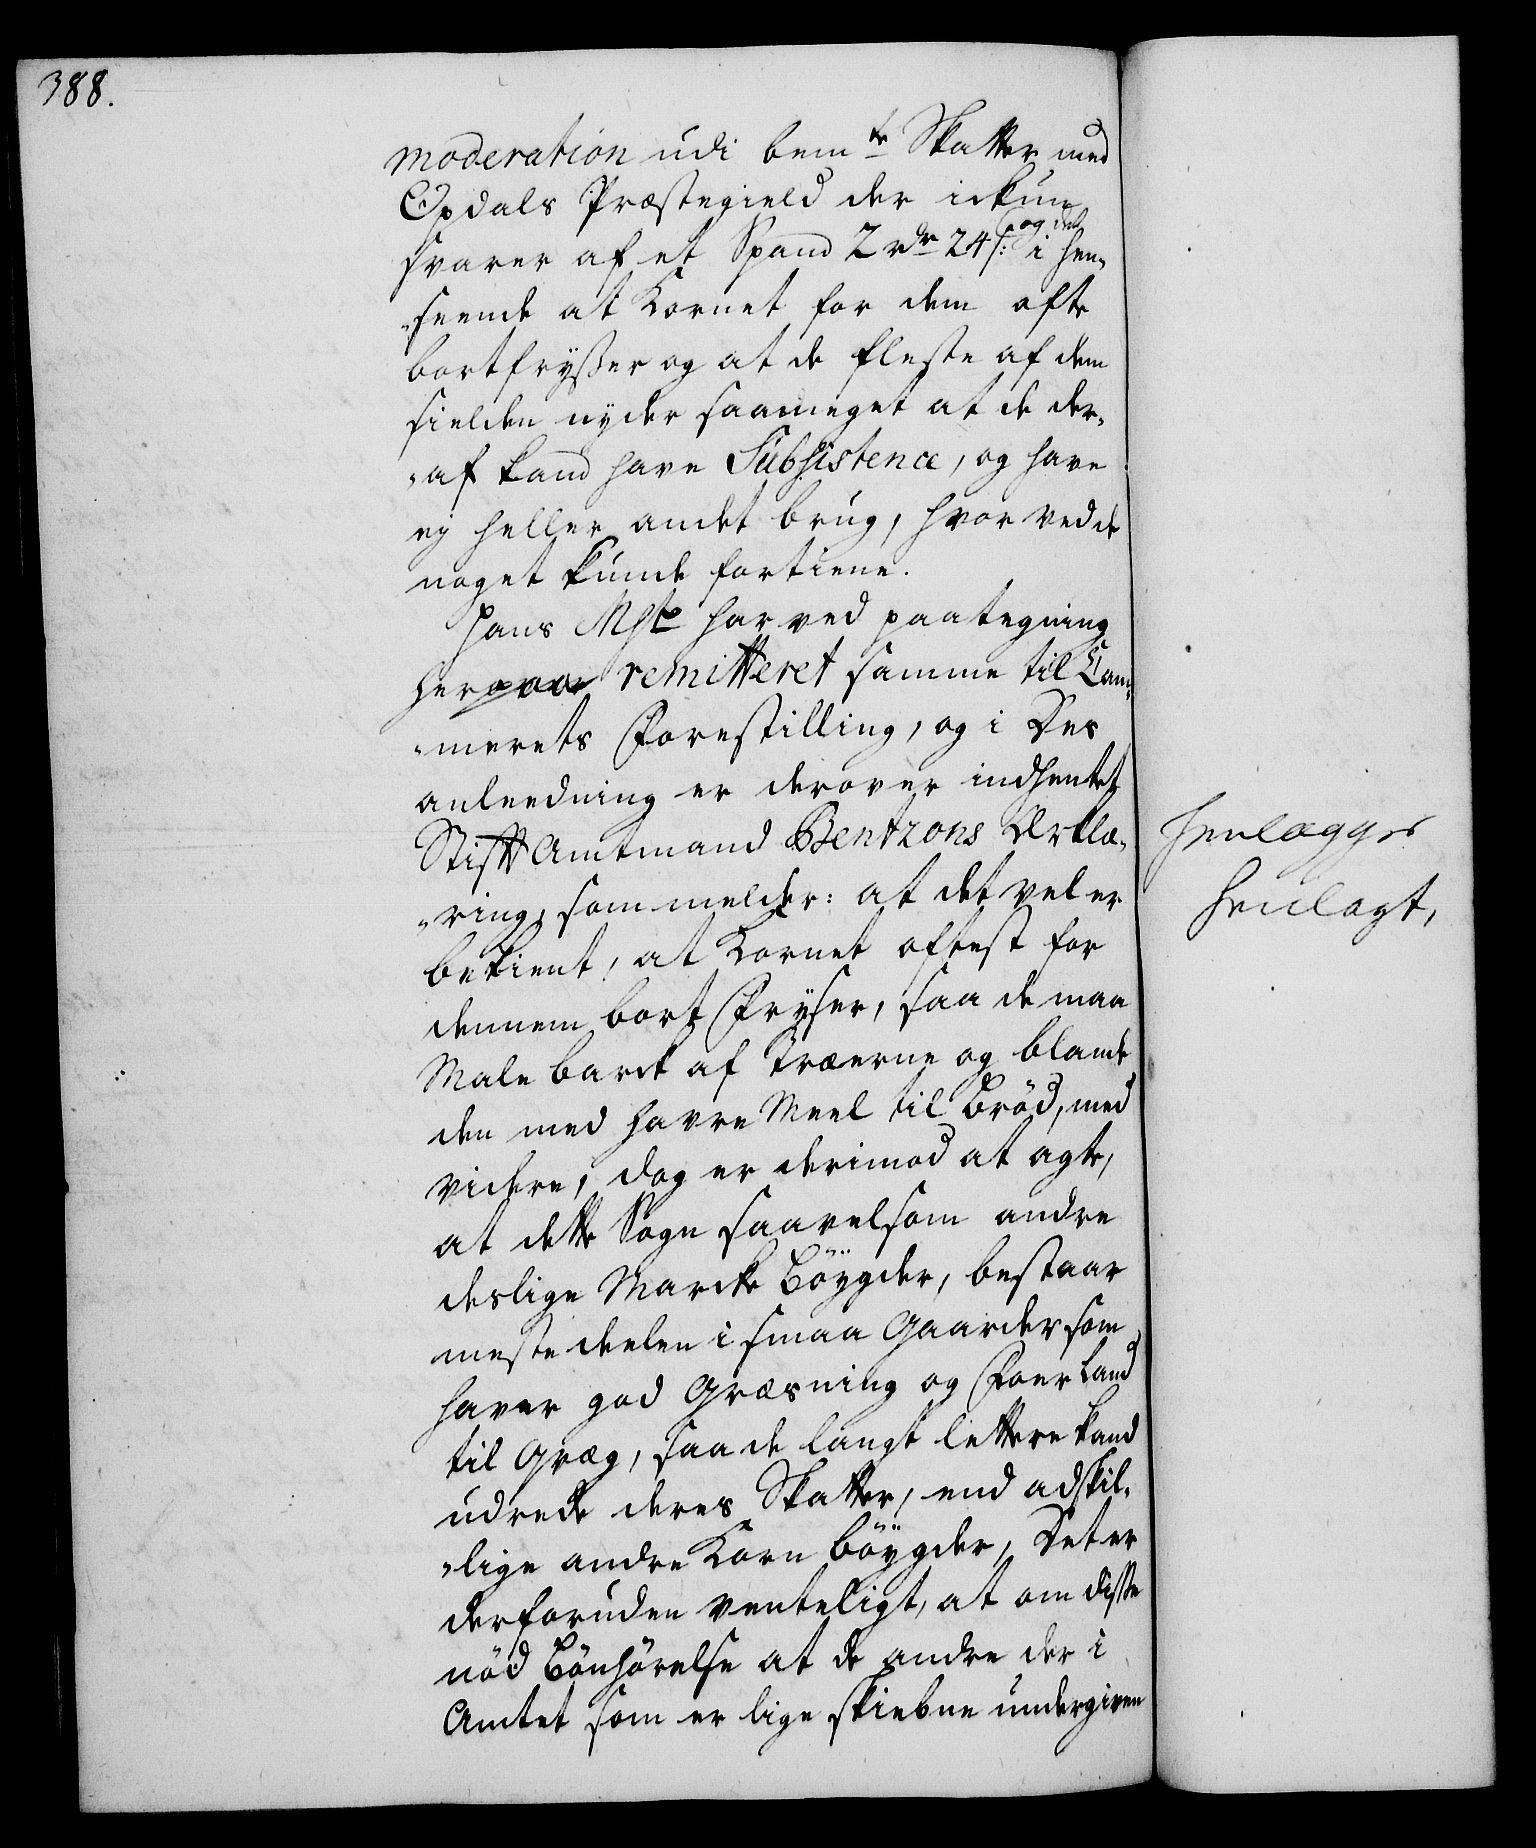 388.
moderation udi bemte Skatter med
Opdals Præstegield der ickun
svarer af et Spand 2 rdr 24 s: og det i hen„
„seende at Kornet for dem ofte
bortfrysser og at de fleste af dem
sielden nyder saameget at de der„
„af kand have Subsistence, og have
ej heller andet brug, hvor ved de
noget kunde fortiene.
Hans Mst har ved paategning
herpaa remitteret samme til Cam„
„merets Forestilling, og i Des
anleedning er derover indhentet
Stift Amtmand Bentzons Erklæ„
„ring, som melder: at det vel er
bekient, at Kornet oftest for
dennem bort Fryser, saa de maa
Male barck af Træerne og blande
den med havre Meel til Brød, med
videre, dog er derimod at agte,
at dette Sogn saavelsom andre
deslige Marcke Bøygder, bestaar
meste deelen i smaa Gaarder som
haver god Græsning og Foer Land
til Qvæg, saa de langt lettere kand
udrede deres Skatter, end adskil„
„lige andre Korn bøygder, Det er
derforuden venteligt, at om disse
nød Bønhørelse at de andre der i
Amtet som er lige skiebne undergiven
Henlægges
Henlagt,